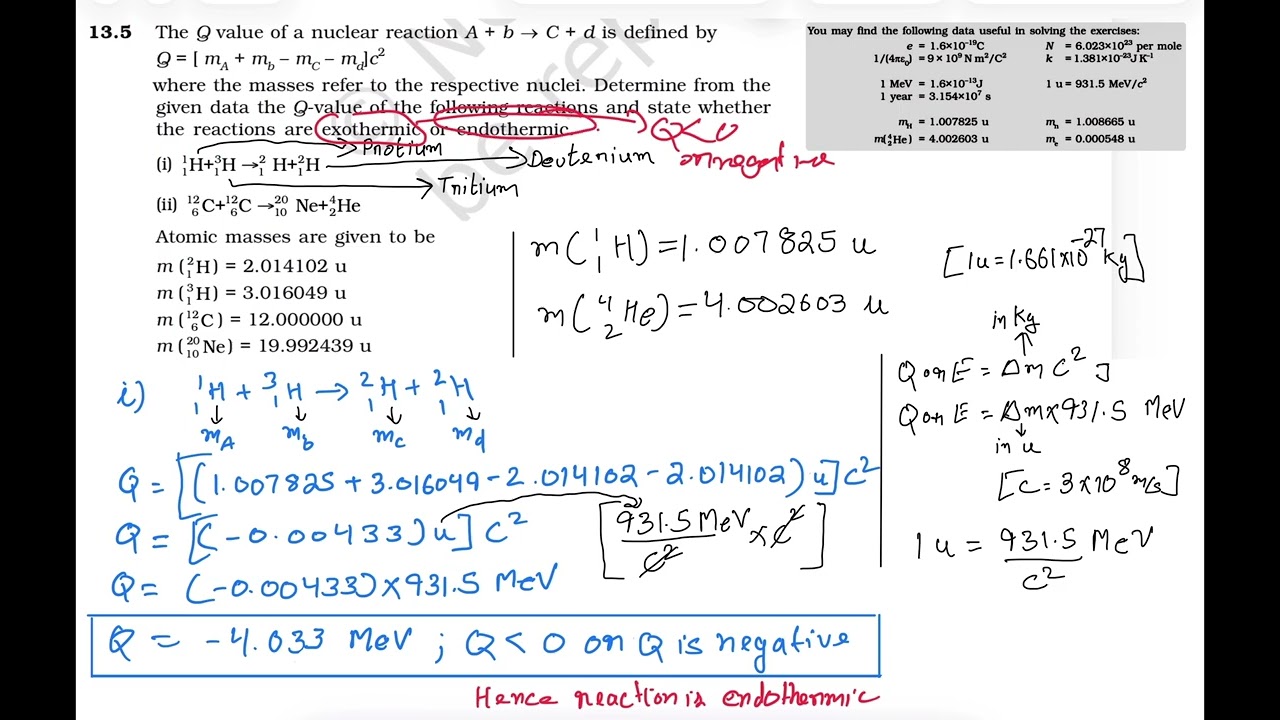 13.5 The Q value of a nuclear reaction A + b → C + d is defined by
Q = [ m_A + m_b − m_C − m_d]c²
where the masses refer to the respective nuclei. Determine from the
given data the Q-value of the following reactions and state whether
the reactions are exothermic or endothermic.
Q<0
or negative
(i) ¹₁H+³₁H →²₁H+²₁H
Protium
Deuterium
Tritium
(ii) ¹²₆C+¹²₆C →²⁰₁₀Ne+⁴₂He
Atomic masses are given to be
m (²₁H) = 2.014102 u
m (³₁H) = 3.016049 u
m (¹²₆C) = 12.000000 u
m (²⁰₁₀Ne) = 19.992439 u
You may find the following data useful in solving the exercises:
e = 1.6×10⁻¹⁹C N = 6.023×10²³ per mole
1/(4πε₀) = 9 × 10⁹ N m²/C² k = 1.381×10⁻²³J K⁻¹
1 MeV = 1.6×10⁻¹³J 1 u = 931.5 MeV/c²
1 year = 3.154×10⁷ s
m_H = 1.007825 u m_n = 1.008665 u
m(⁴₂He) = 4.002603 u m_e = 0.000548 u
m(¹₁H) = 1.007825 u
m(⁴₂He) = 4.002603 u
[1u = 1.661×10⁻²⁷ Kg]
in Kg
Q or E = Δm c² J
Q or E = Δm×931.5 MeV
in u
[c = 3×10⁸ m/s]
1 u = 931.5 MeV/c²
i) ¹₁H + ³₁H → ²₁H + ²₁H
m_A m_b m_c m_d
Q = [(1.007825 + 3.016049 - 2.014102 - 2.014102) u] c²
Q = [(-0.00433) u] c² [931.5 MeV/c² × c²]
Q = (-0.00433) × 931.5 MeV
Q = -4.033 MeV ; Q < 0 or Q is negative
Hence reaction is endothermic